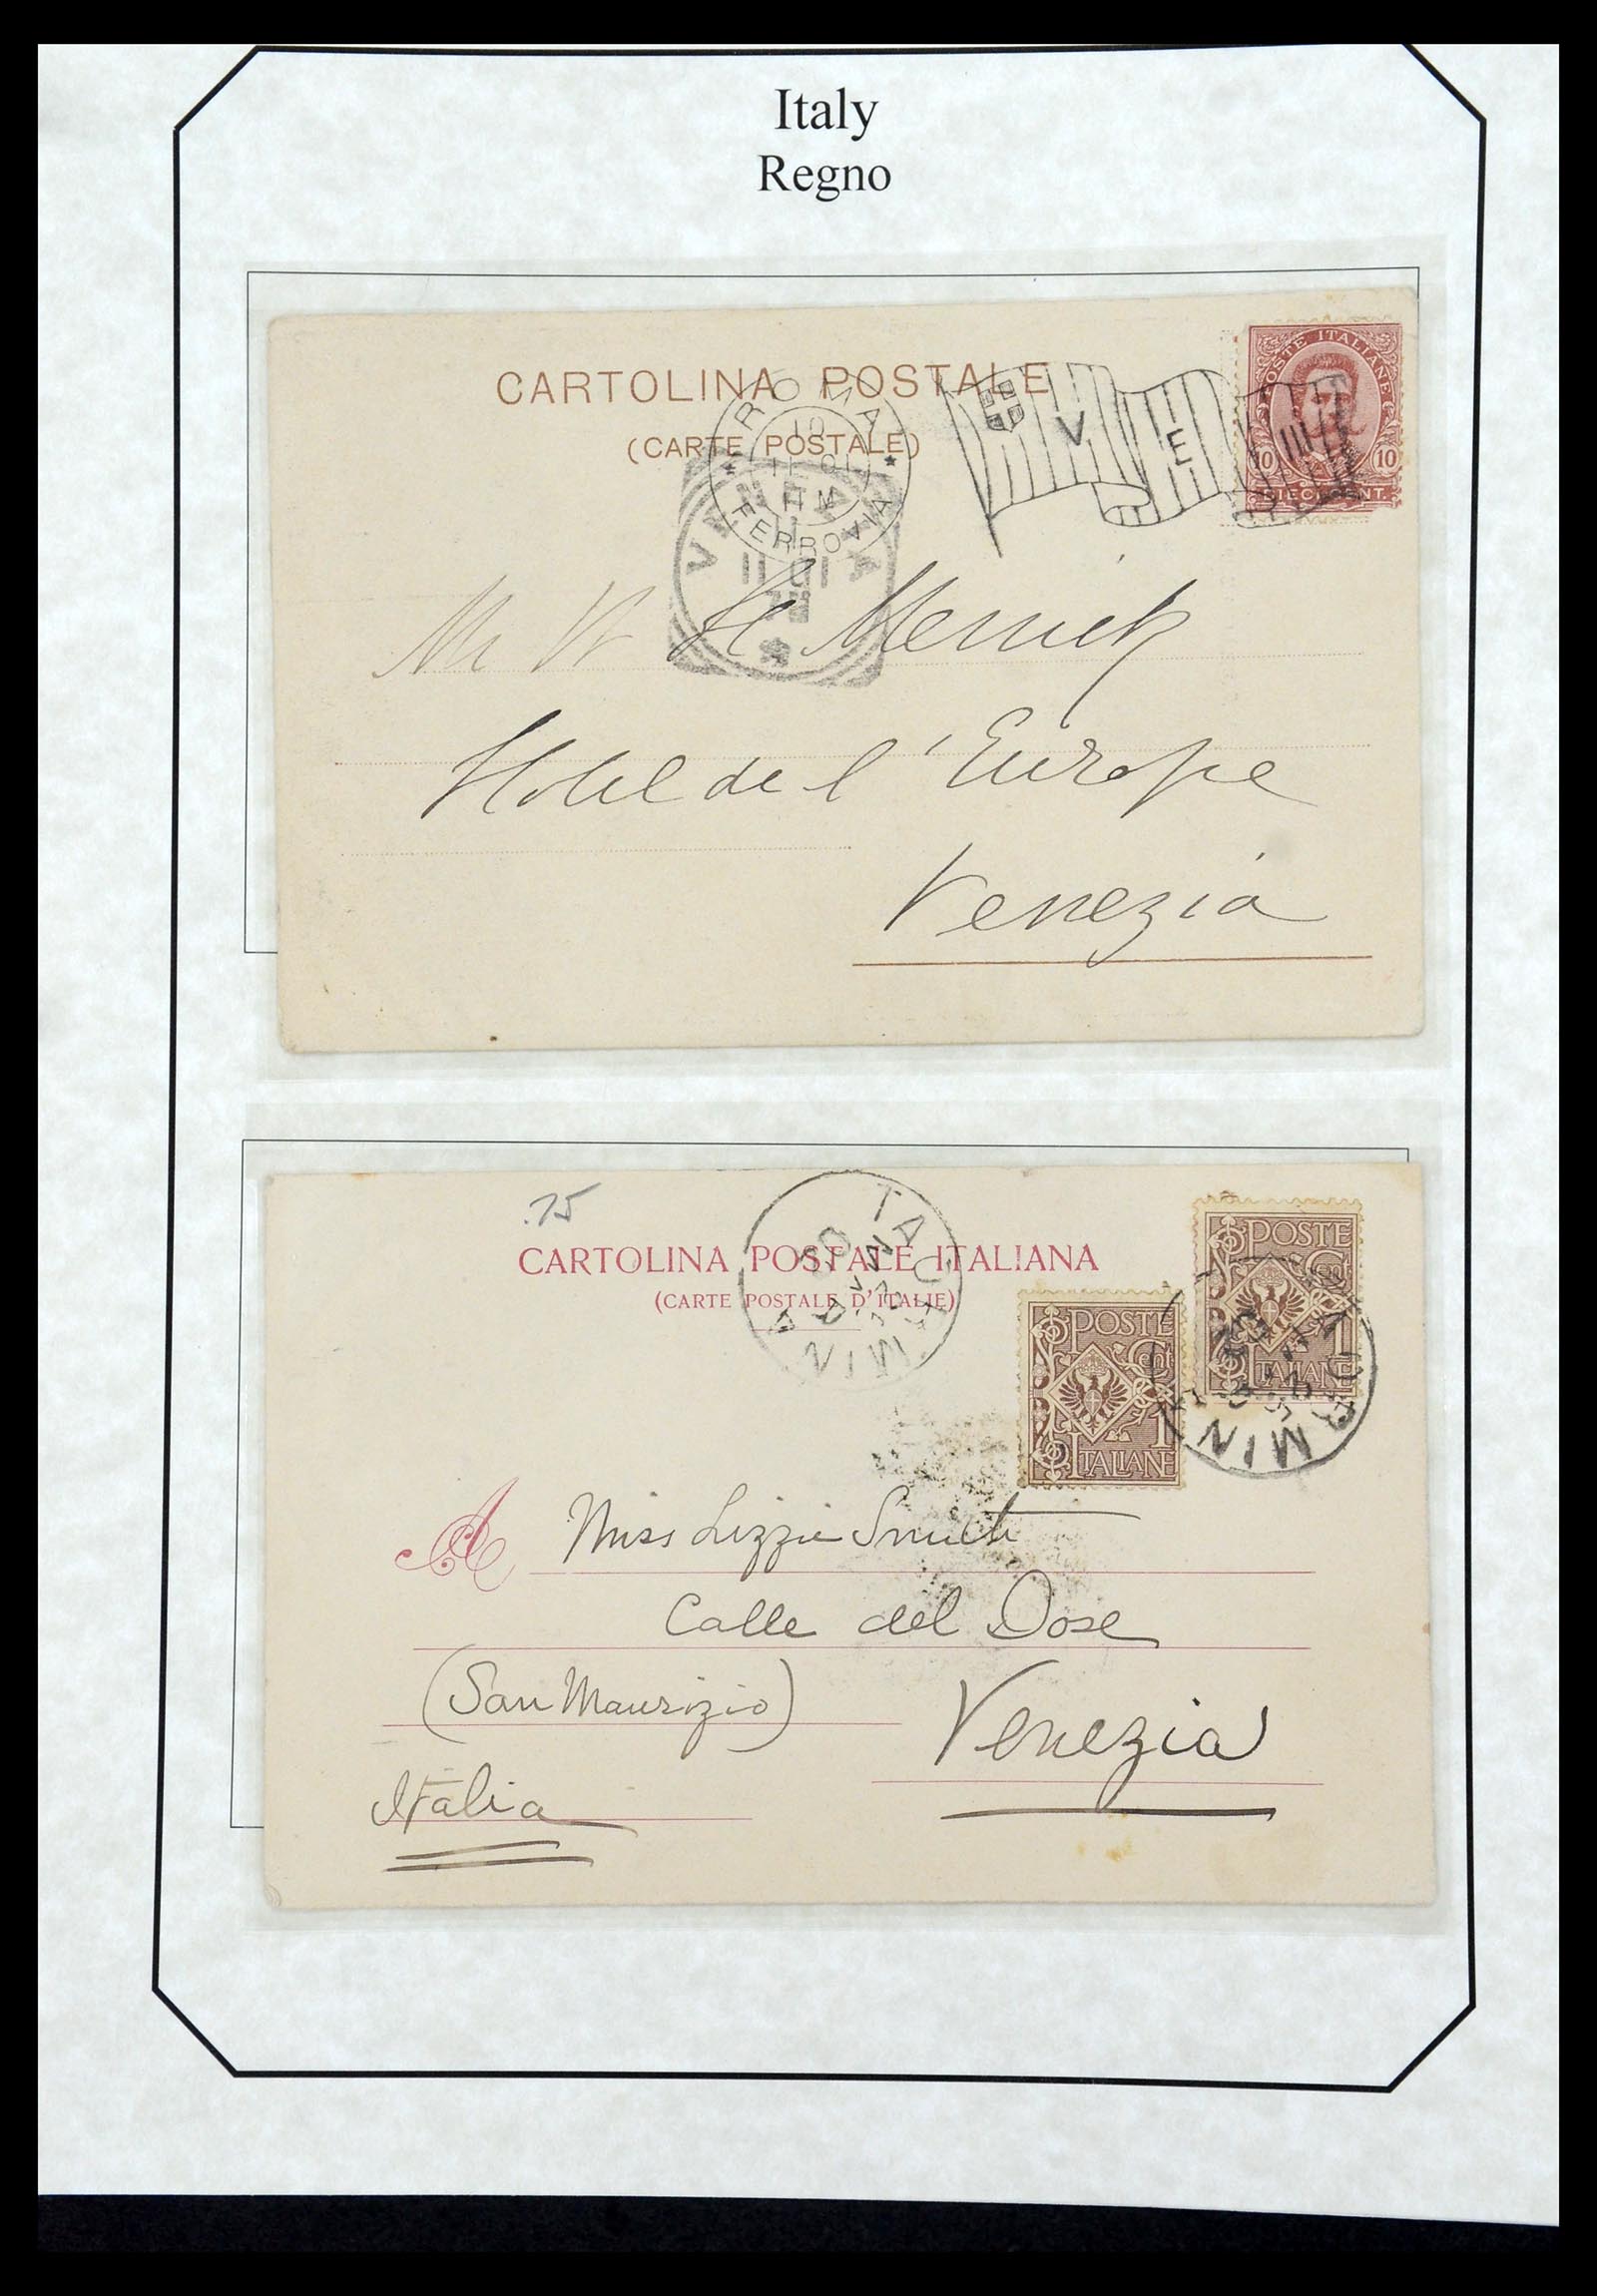 Italy
Regno
CARTOLINA POSTALE
(CARTE POSTALE)
ROMA
FERROVIA
VENEZIA
11 01
V E
POSTE ITALIANE
10 10
DIECI CENT.
Mr W H Merrick
Hotel de l'Europe
Venezia
.75
CARTOLINA POSTALE ITALIANA
(CARTE POSTALE D'ITALIE)
TAORMINA
POSTE
Cent
1
ITALIANE
POSTE
Cent
1
ITALIANE
TAORMINA
A Miss Lizzie Smith
Calle del Dose
(San Maurizio)
Venezia
Italia